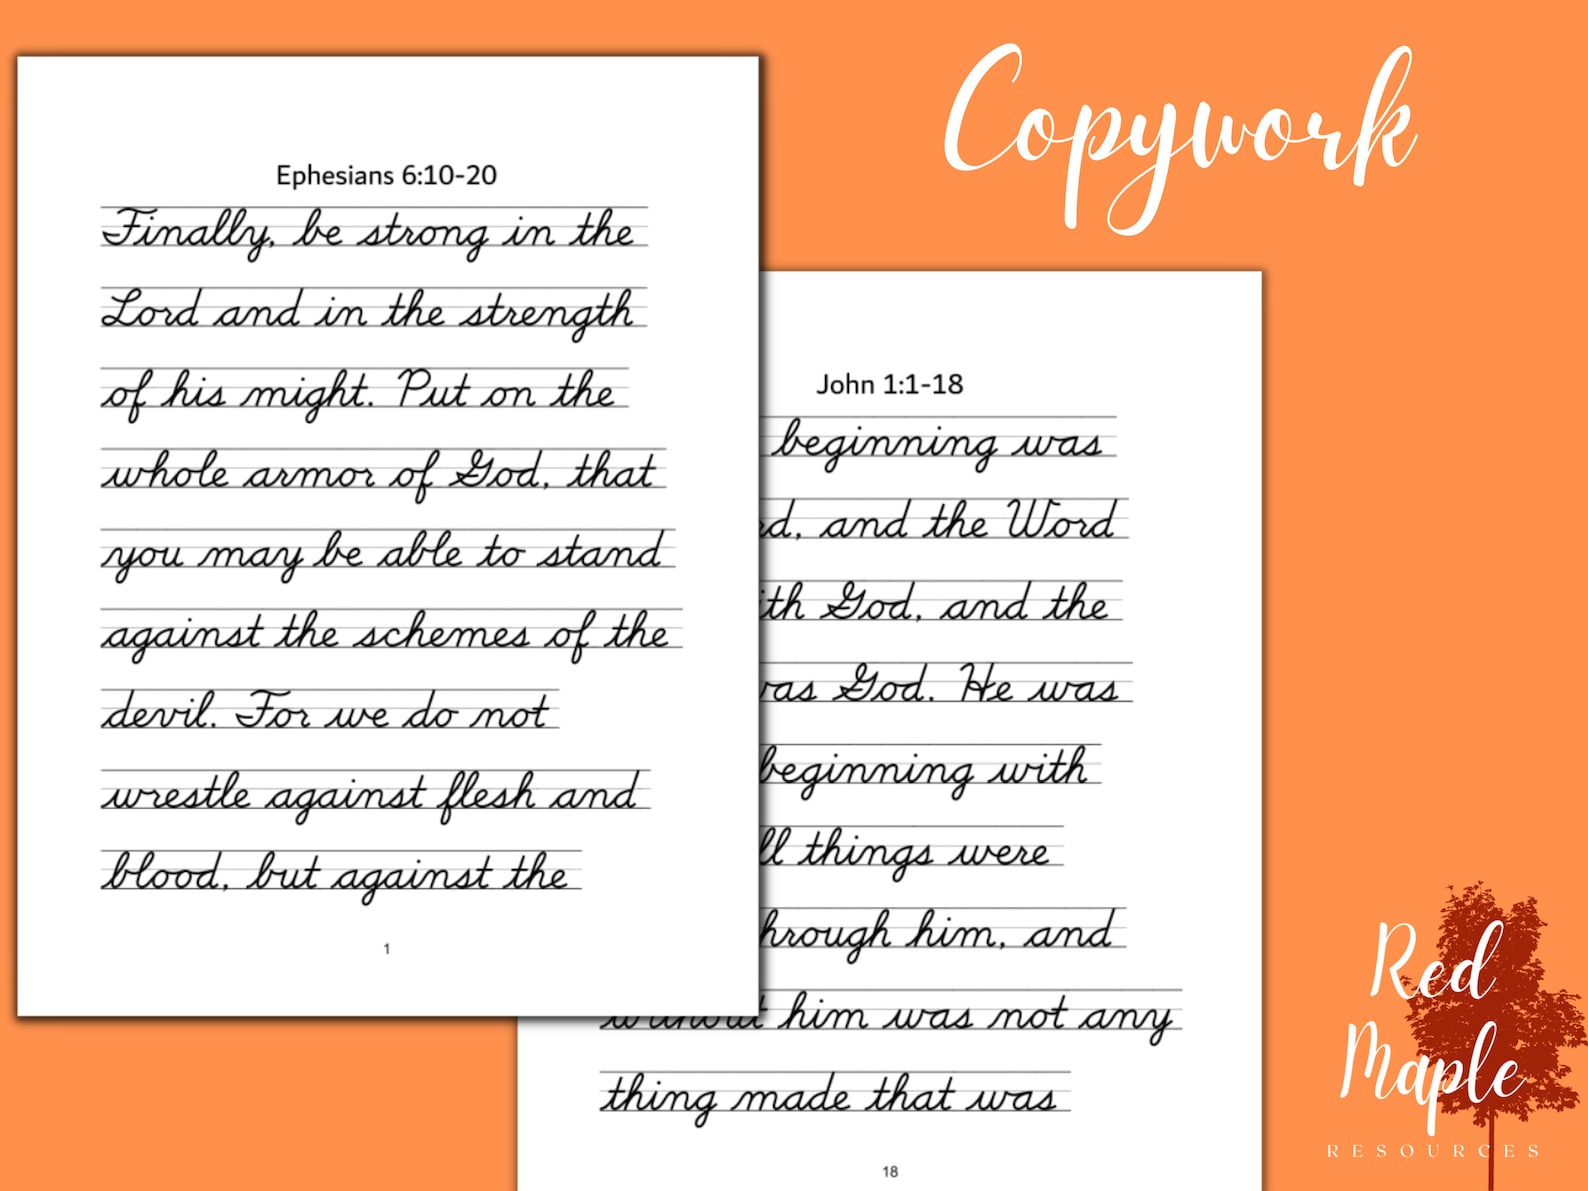 Copywork
Ephesians 6:10-20
Finally, be strong in the
Lord and in the strength
of his might. Put on the
whole armor of God, that
you may be able to stand
against the schemes of the
devil. For we do not
wrestle against flesh and
blood, but against the
1
John 1:1-18
beginning was
and the Word
God, and the
God. He was
beginning with
things were
him, and
him was not any
thing made that was
18
Red
Maple
RESOURCES